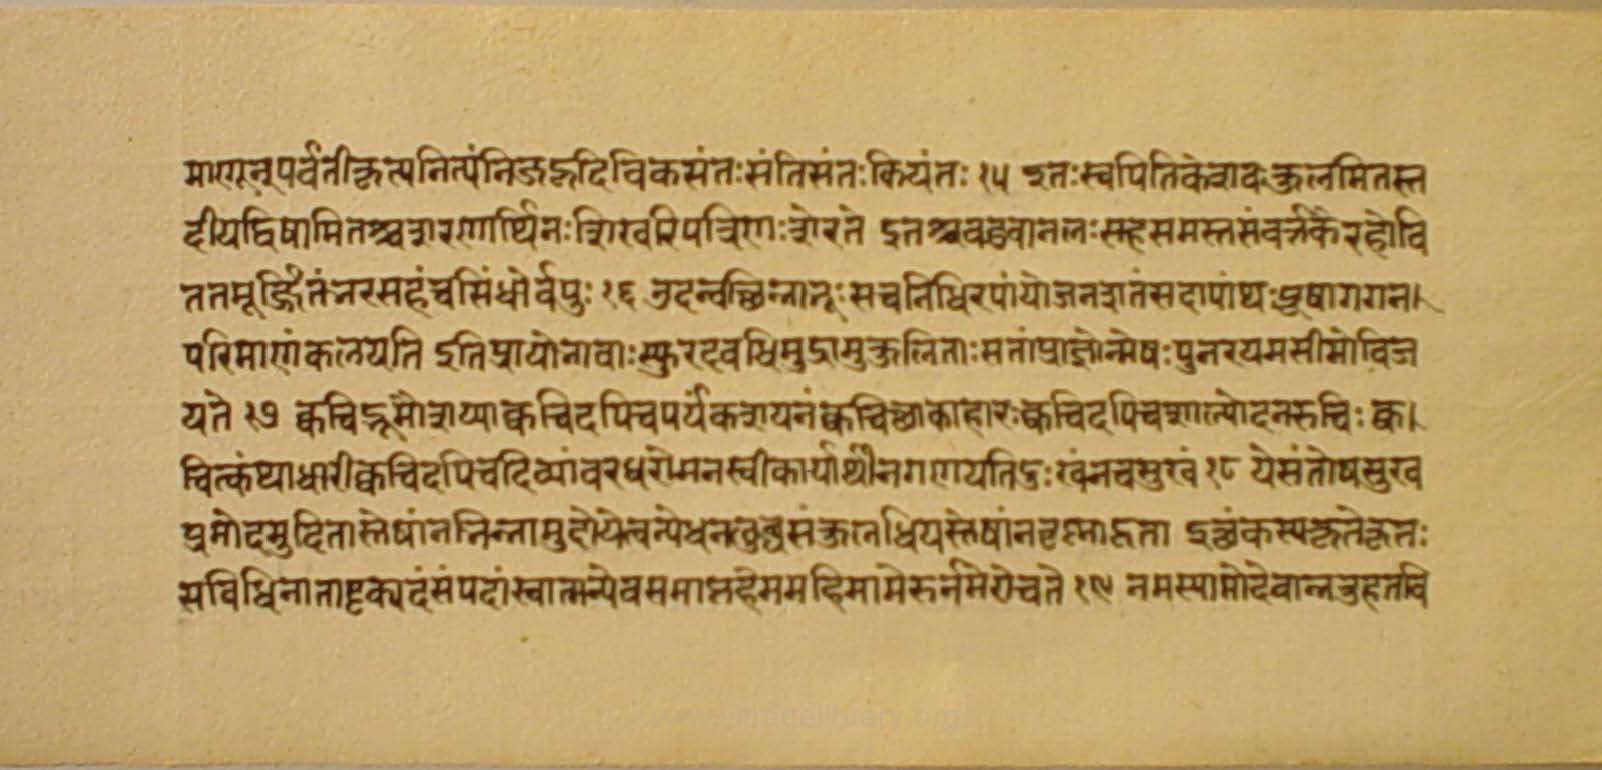 माणून्पर्वतीकृत्यनित्यंनिजहृदिविकसंतःसंतिसंतःकियंतः १५ इतःस्वपितिकेशवःकुलमितस्त
दीयद्विषामितश्चशरणार्थिनःशिखरिपत्रिणःशेरते इतश्चवडवानलःसहसमस्तसंवर्त्तकैरहोवि
ततमूर्जितंभरसहंचसिंधोर्वपुः १६ उदन्वच्छिन्नाभूःसचनिधिरपांयोजनशतंसदापांथःपूषागगन
परिमाणंकलयति इतिप्रायोभावाःस्फुरदवधिमुद्रामुकुलिताःसतांप्राज्ञोन्मेषःपुनरयमसीमोविज
यते १७ क्वचिद्भूमौशय्याक्वचिदपिचपर्यंकशयनंक्वचिच्छाकाहारःक्वचिदपिचशाल्योदनरुचिः क्व
चित्कंथाधारीक्वचिदपिचदिव्यांवरधरोमनस्वीकार्यार्थीनगणयतिदुःखंनचसुखं १८ येसंतोषसुख
प्रमोदमुदितास्तेषांनभिन्नामुदोयेत्वन्येधनलुब्धसंकुलधियस्तेषांनतृष्णाहता इत्थंकस्यकृतेकृतः
सविधिनातादृक्पदंसंपदांस्वात्मन्येवसमाप्तहेममहिमामेरुर्नमेरोचते १९ नमस्यामोदेवान्ननुहतवि